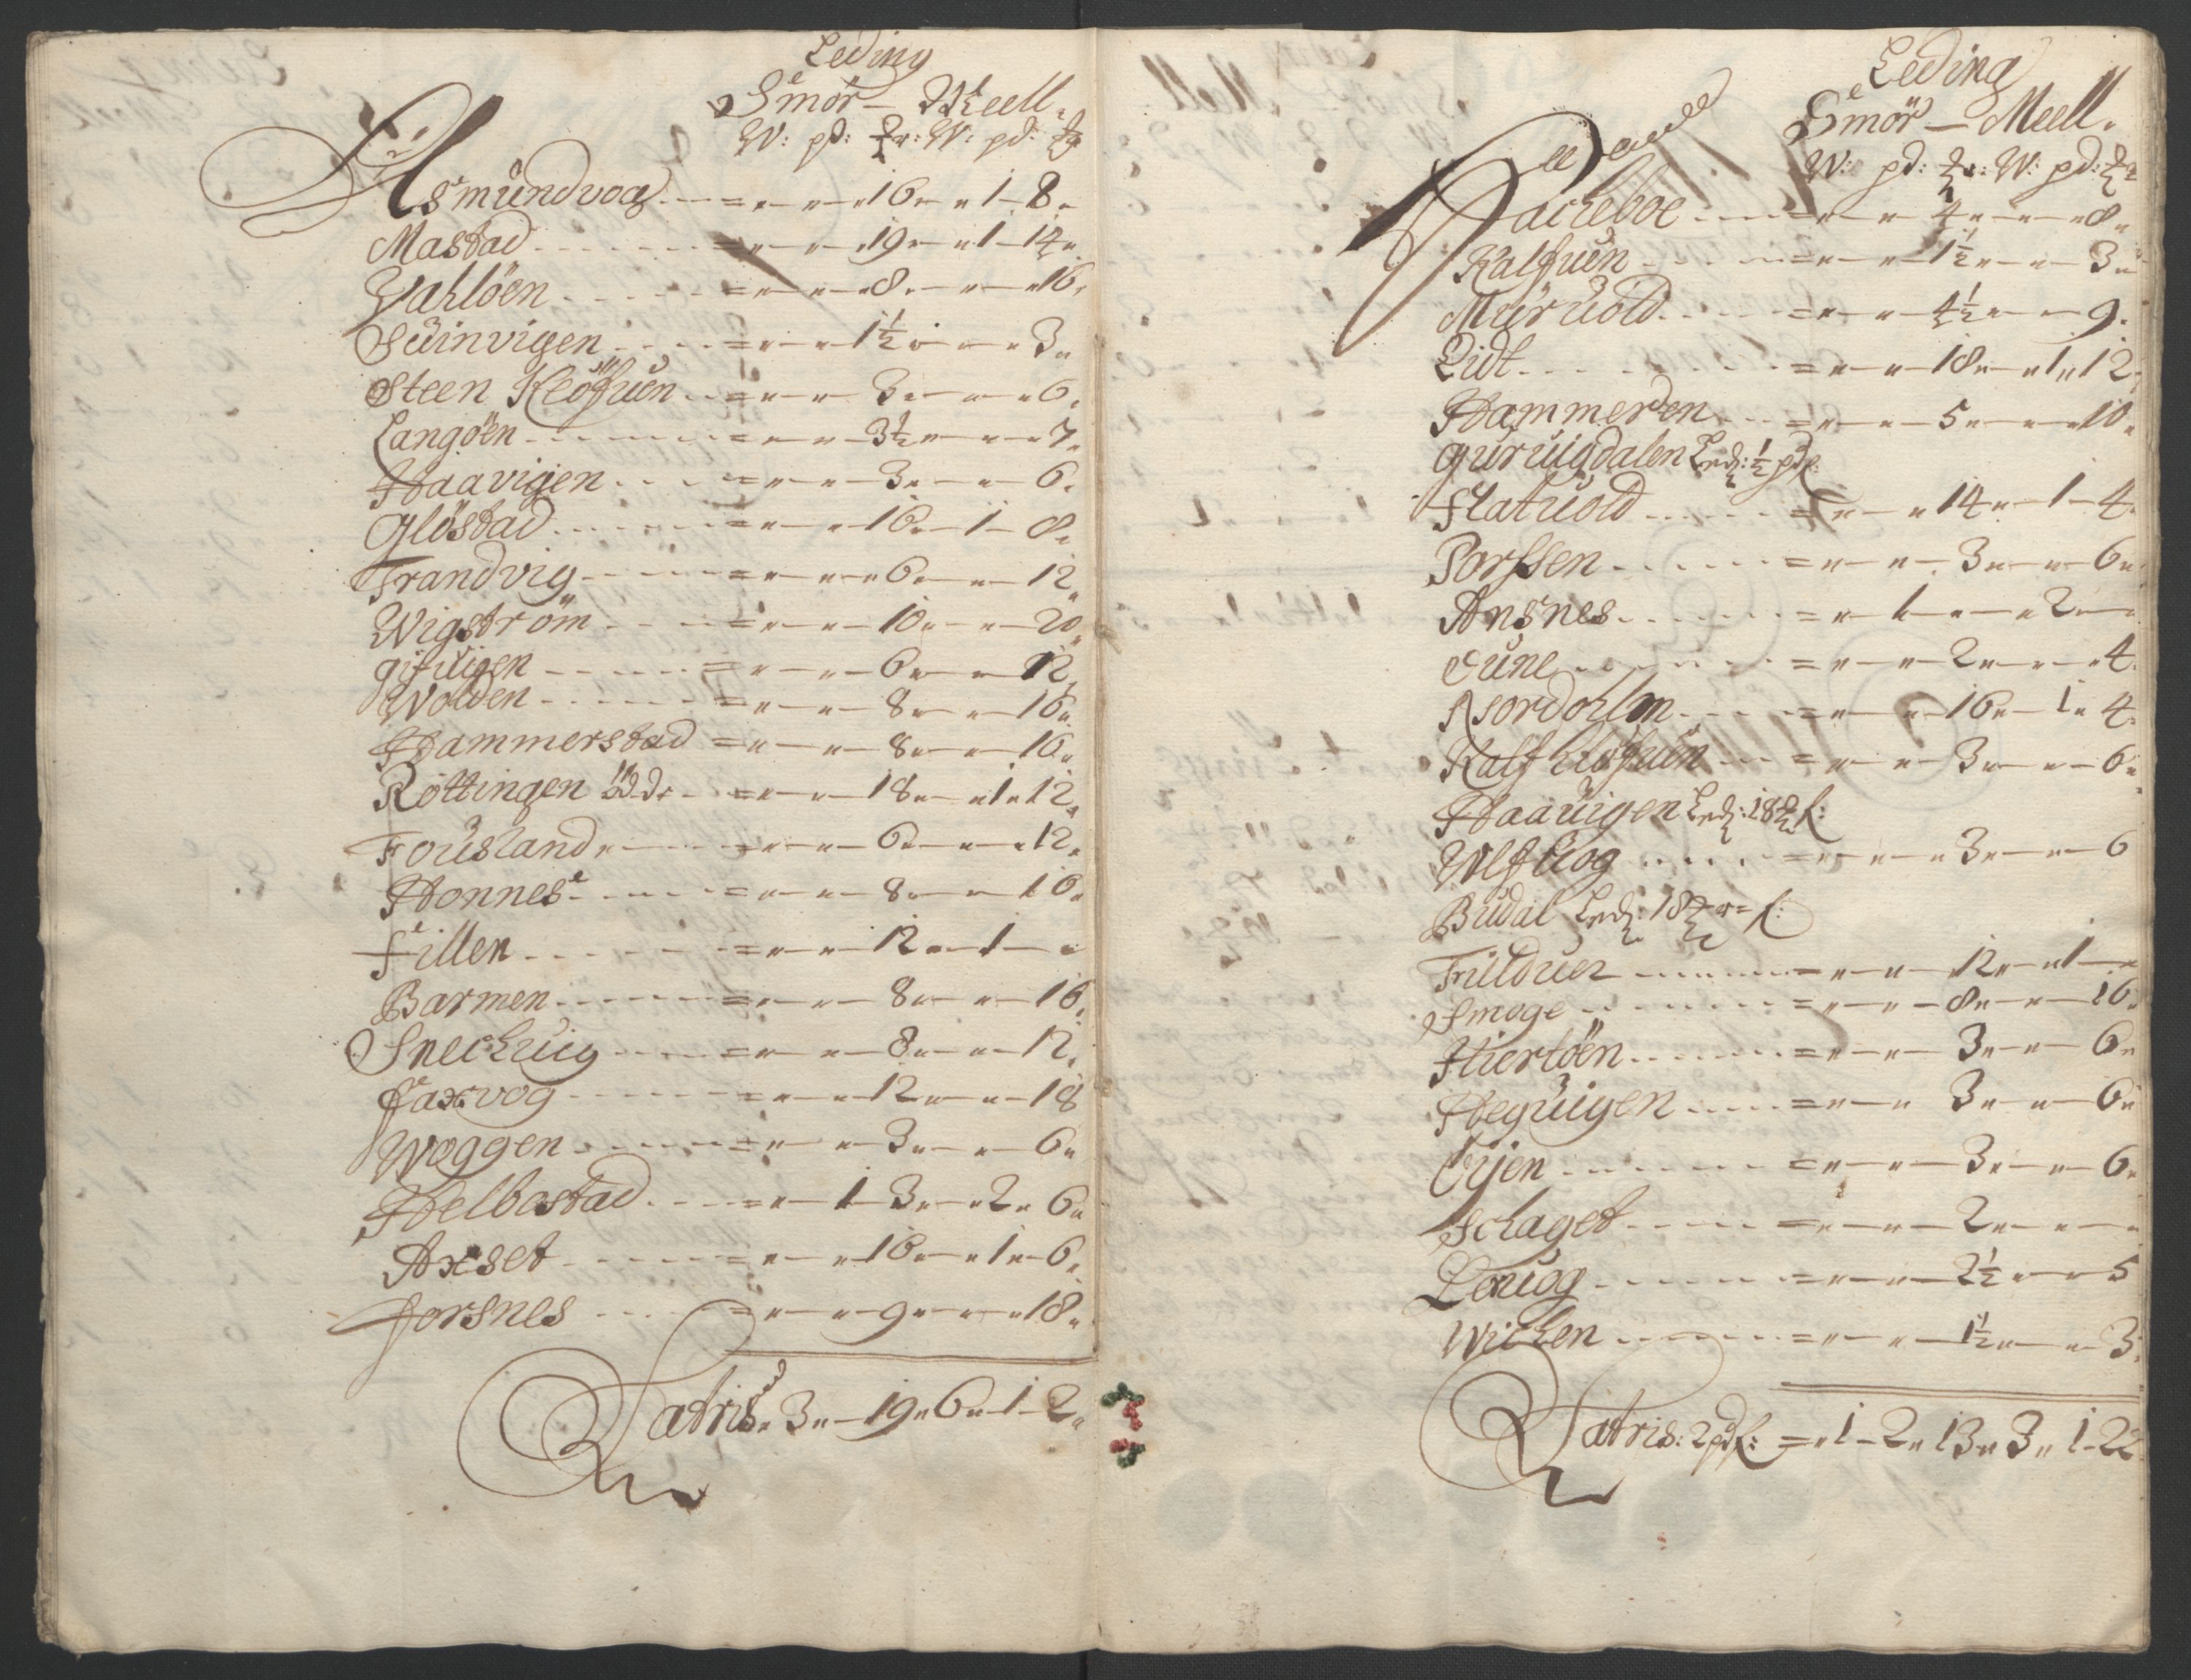 Leding
Smör — Meell.
W: pd: W: pd:
Asmundvog . . . = " — " — " 16 " — " 1 — 8 "
Mastad . . . . . = " — " — " 19 " — " 1 — 14 "
Dahlöen . . . . . = " — " — " 8 " — " — " 16 "
Suinvigen . . . . = " — " — " 1½ " — " — " 3 "
Steen Kløfuen . . = " — " — 3 " — " — " 6 "
Langöen . . . . . = " — " — 3½ " — " — " 7 "
Haavigen . . . . = " — " — 3 " — " — 6 "
Gløstad . . . . . = " — " — " 16 " — 1 — 8 "
Trandvig . . . . = " — " — " 6 " — " — 12 "
Wigström . . . . = " — " — 10 " — " — 20 "
gifuigen . . . . = " — " — 6 " — " — 12 "
Wolden . . . . . = " — " — 8 " — " — 16 "
Hammerstad = " — " — 8 " — " — 16 "
Röttingen . . = " — " — 18 " — " 1 " 12 "
Fousland . . . . = " — " — 6 " — " — " 12 "
Honnes . . . . . = " — " — 8 " — " — 16 "
Fillen . . . . . = " — " — 12 " — 1 — "
Barmen . . . . . = " — " — 8 " — " — 16 "
Snechuig . . . . = " — " — 8 " — " — 12 "
Faxvog . . . . . = " — " — 12 " — " — 18
Woggen . . . . . = " — " — 3 " — " — 6 "
Helbostad . . . . = " — 1 — 3 " — " 2 " 6 "
Axset . . . . . . = " — " — " 16 " — " 1 " — 6 "
forsnes . . . . . = " — " — " 9 " — " — " 18 "
Latris " 3 " — 19 " 6 " 1 — 2 "
Leding
Smör — Meell.
W: pd: W: pd:
Bacheboe . . . . = " — " — 4 " — " — " 8 "
Kalfuen . . . . . = " — " — " 1½ " — " — 3 "
Muruold . . . . . = " — " — 4½ " — " — 9 "
Lidt . . . . . . = " — " — 18 " — " 1 " 12 "
Hammeren . . . . = " — " — 5 " — " — " 10 "
guruigdalen Led: ½ pd f:
Flatuold . . . . = " — " — " 14 " — 1 — 4 "
Porssen . . . . . = " — " — 3 " — " — 6 "
Ansnes . . . . . = " — 1 — " — " 2 " — "
Sune . . . . . . = " — " — 2 " — " — " 4 "
Nordohlm . . . . = " — " — 16 " — 1 " 4 "
Kalf Kløfuen . . = " — " — 3 " — " — 6 "
Haauigen Led: 18 f:
Wlfuog . . . . . = " — " — " 3 " — " — 6
Budal Led: 18 f:
Fulduer . . . . . = " — " — 12 " — " 1 — "
Smoge . . . . . . = " — " — 8 " — " — 16 "
Hiertöen . . . . = " — " — 3 " — " — 6 "
Heguigen . . . . = " — " 3 " — " — 6 "
Öyen . . . . . . = " — " — 3 " — " — 6 "
Schaget . . . . . = " — " — 2 " — " — "
Leruog . . . . . = " — " — 2½ " — " 5
Wichen . . . . . = " — " — 1½ " — " — 3 "
Latris: 2 pd f: = " 1 — 2 " 13 " 3 " 1 — 22